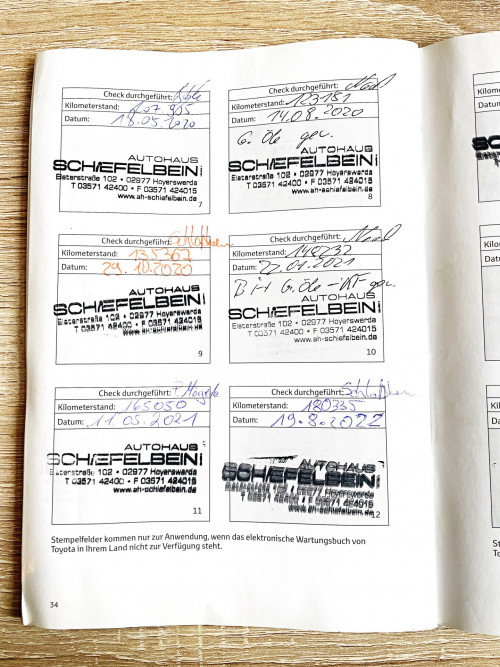 Check durchgeführt:
Kilometerstand: 107 905
Datum: 18.05.2020
AUTOHAUS
SCHIEFELBEIN
Elsterstraße 102 • 02977 Hoyerswerda
T 03571 42400 • F 03571 424015
www.ah-schiefelbein.de
7
Check durchgeführt:
Kilometerstand: 123181
Datum: 14.08.2020
G. Öle gew.
AUTOHAUS
SCHIEFELBEIN
Elsterstraße 102 • 02977 Hoyerswerda
T 03571 42400 • F 03571 424015
www.ah-schiefelbein.de
8
Check durchgeführt:
Kilometerstand: 135367
Datum: 29.10.2020
AUTOHAUS
SCHIEFELBEIN
Elsterstraße 102 • 02977 Hoyerswerda
T 03571 42400 • F 03571 424015
www.ah-schiefelbein.de
9
Check durchgeführt:
Kilometerstand: 148232
Datum: 22.01.2021
AUTOHAUS
SCHIEFELBEIN
Elsterstraße 102 • 02977 Hoyerswerda
T 03571 42400 • F 03571 424015
www.ah-schiefelbein.de
10
Check durchgeführt:
Kilometerstand: 165050
Datum: 11.05.2021
AUTOHAUS
SCHIEFELBEIN
Elsterstraße 102 • 02977 Hoyerswerda
T 03571 42400 • F 03571 424015
www.ah-schiefelbein.de
11
Check durchgeführt:
Kilometerstand: 180335
Datum: 19.8.2022
AUTOHAUS
SCHIEFELBEIN
T 03571 42400 • F 03571 424015
www.ah-schiefelbein.de
12
Stempelfelder kommen nur zur Anwendung, wenn das elektronische Wartungsbuch von
Toyota in Ihrem Land nicht zur Verfügung steht.
34